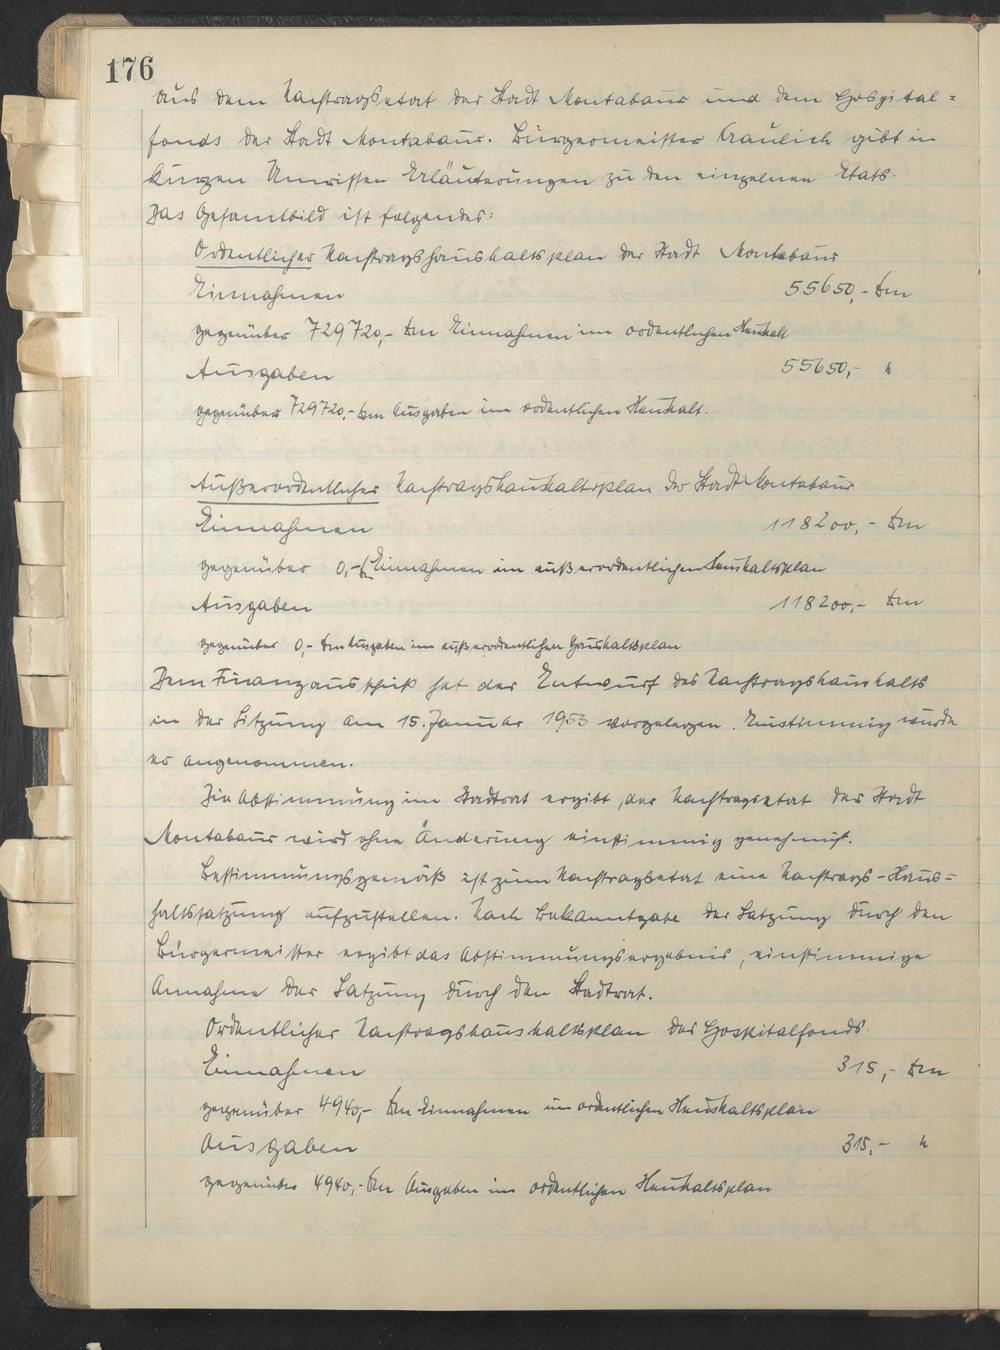 176
aus dem Nachtragsetat der Stadt Montabaur und dem Hospital=
fonds der Stadt Montabaur. Bürgermeister Kraulich gibt in
kurzen Umrissen Erläuterungen zu den einzelnen Etats.
Das Gesamtbild ist folgendes:
Ordentlicher Nachtragshaushaltsplan der Stadt Montabaur
Einnahmen 55650,- Dm
gegenüber 729720,- Dm Einnahmen im ordentlichen Haushalt
Ausgaben 55650,- "
gegenüber 729720,- Dm Ausgaben im ordentlichen Haushalt.
Außerordentlicher Nachtragshaushaltsplan der Stadt Montabaur
Einnahmen 118200,- Dm
gegenüber 0,- Einnahmen im außerordentlichen Haushaltsplan
Ausgaben 118200,- Dm
gegenüber 0,- Dm Ausgaben im außerordentlichen Haushaltsplan
Dem Finanzausschuß hat der Entwurf des Nachtragshaushalts
in der Sitzung am 15. Januar 1953 vorgelegen. Einstimmig wurde
er angenommen.
Die Abstimmung im Stadtrat ergibt, der Nachtragsetat der Stadt
Montabaur wird ohne Änderung einstimmig genehmigt.
Bestimmungsgemäß ist zum Nachtragsetat eine Nachtrags-Haus=
haltssatzung aufzustellen. Nach Bekanntgabe der Satzung durch den
Bürgermeister ergibt das Abstimmungsergebnis, einstimmige
Annahme der Satzung durch den Stadtrat.
Ordentlicher Nachtragshaushaltsplan des Hospitalfonds.
Einnahmen 315,- Dm
gegenüber 4940,- Dm Einnahmen im ordentlichen Haushaltsplan
Ausgaben 315,- "
gegenüber 4940,- Dm Ausgaben im ordentlichen Haushaltsplan